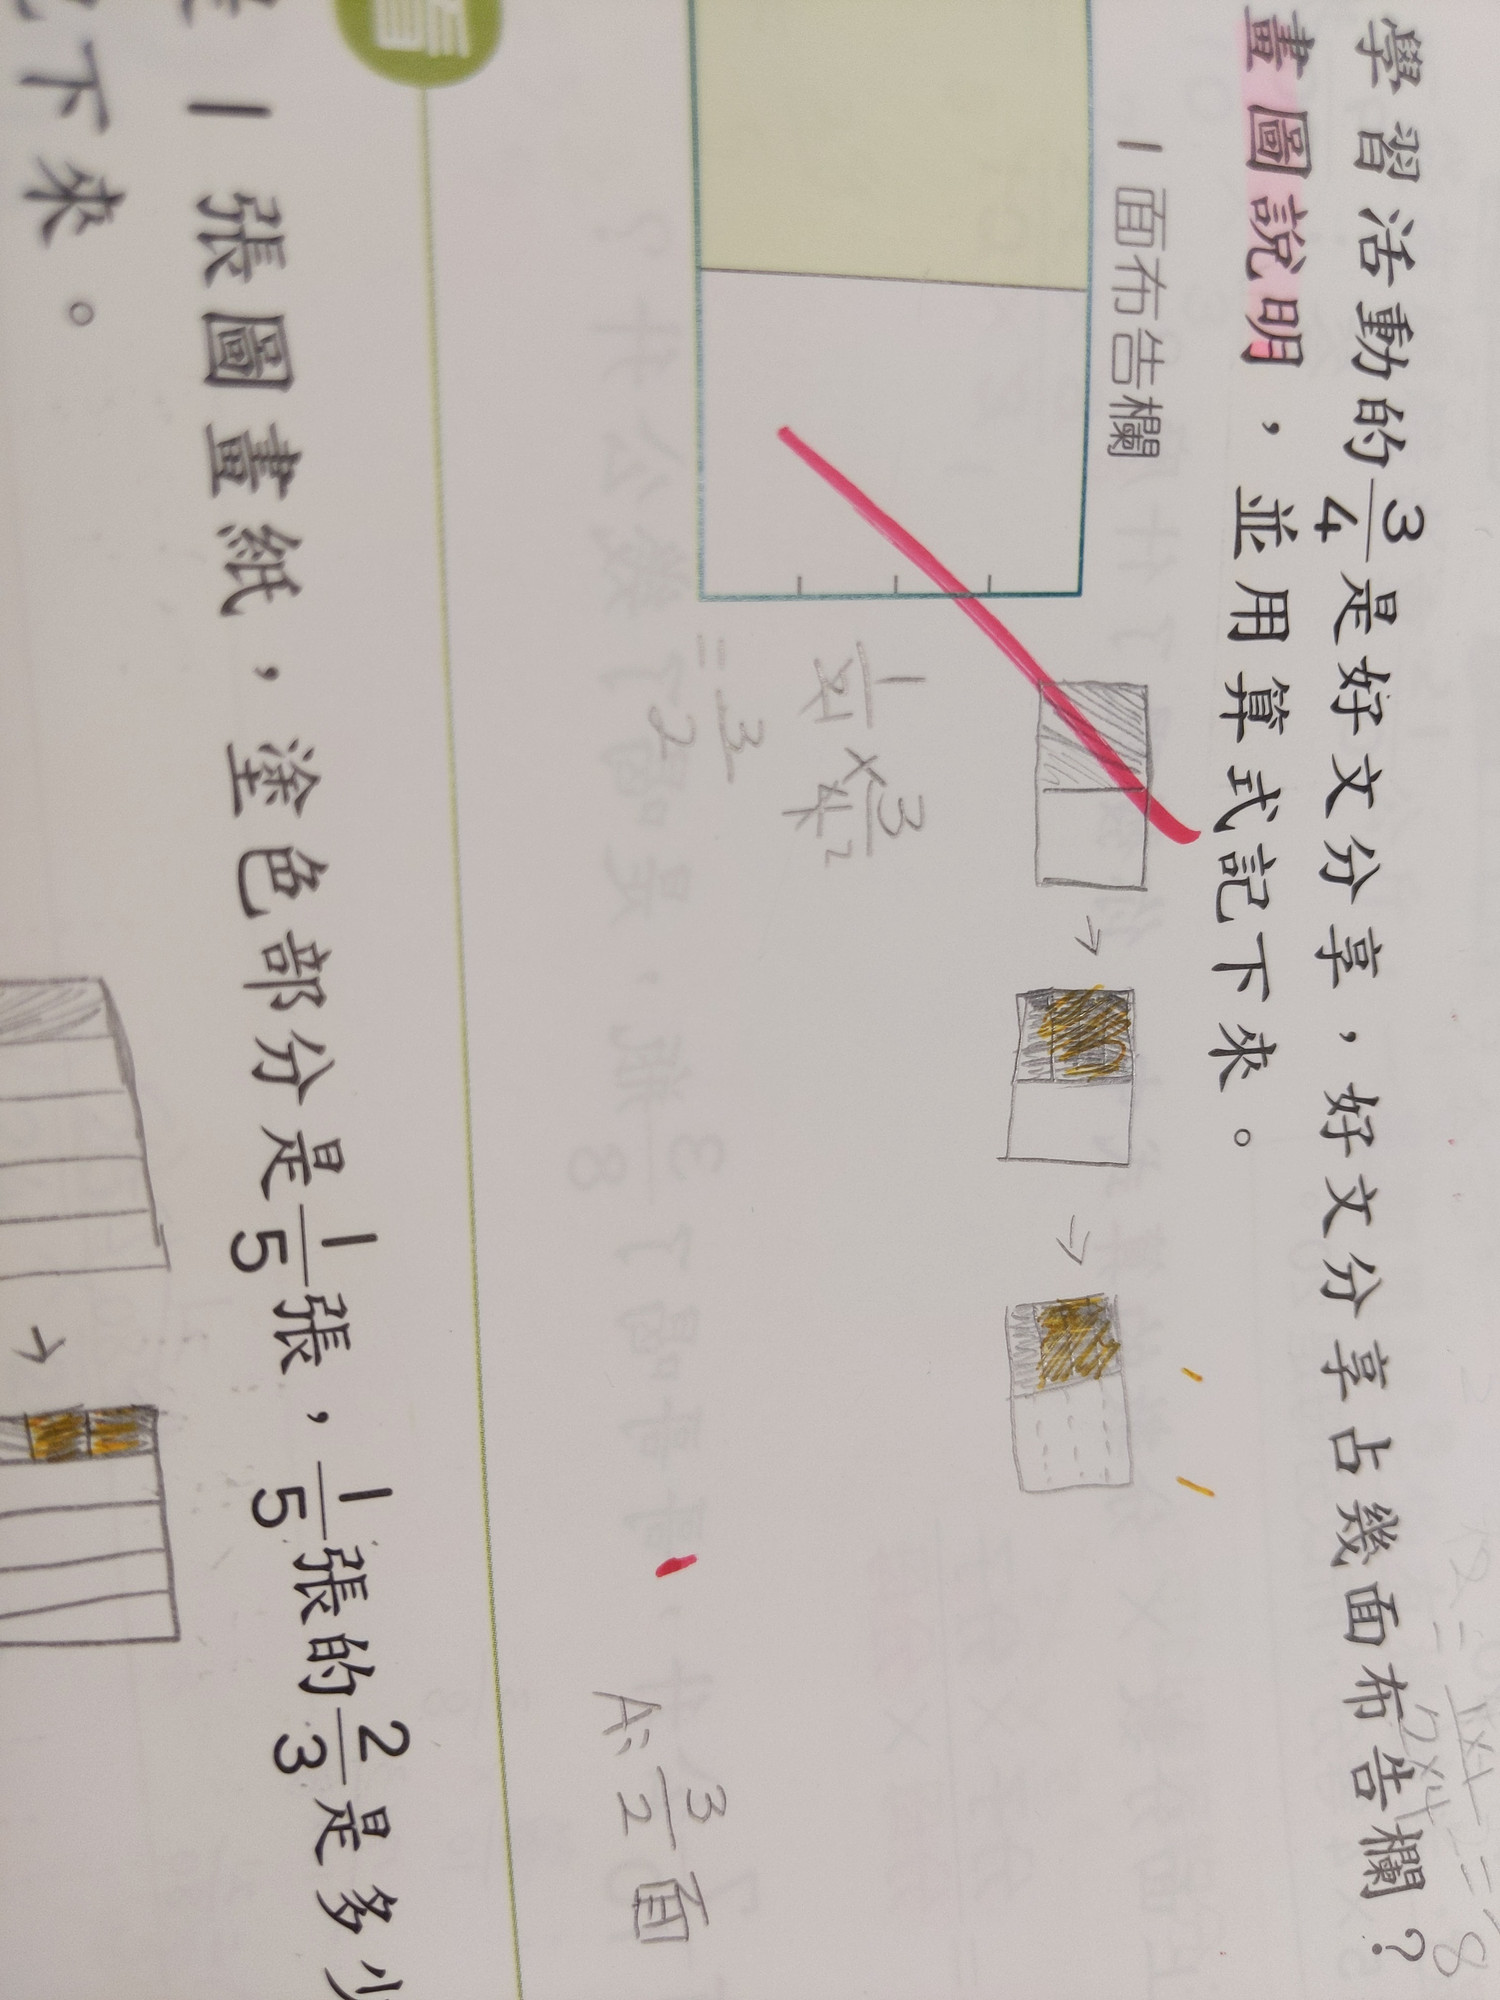 學習活動的3/4是好文分享，好文分享占幾面布告欄？
畫圖說明，並用算式記下來。
1面布告欄
1/2 × 3/4 2
= 3/2
A: 3/2 面
看
1張圖畫紙，塗色部分是1/5張，1/5張的2/3是多少
下來。